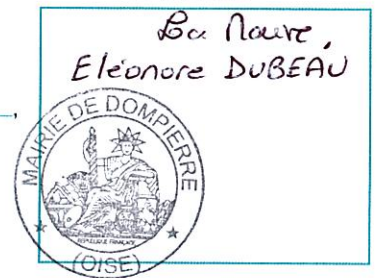 La Maire,
Eléonore DUBEAU
MAIRIE DE DOMPIERRE
RÉPUBLIQUE FRANÇAISE
(OISE)